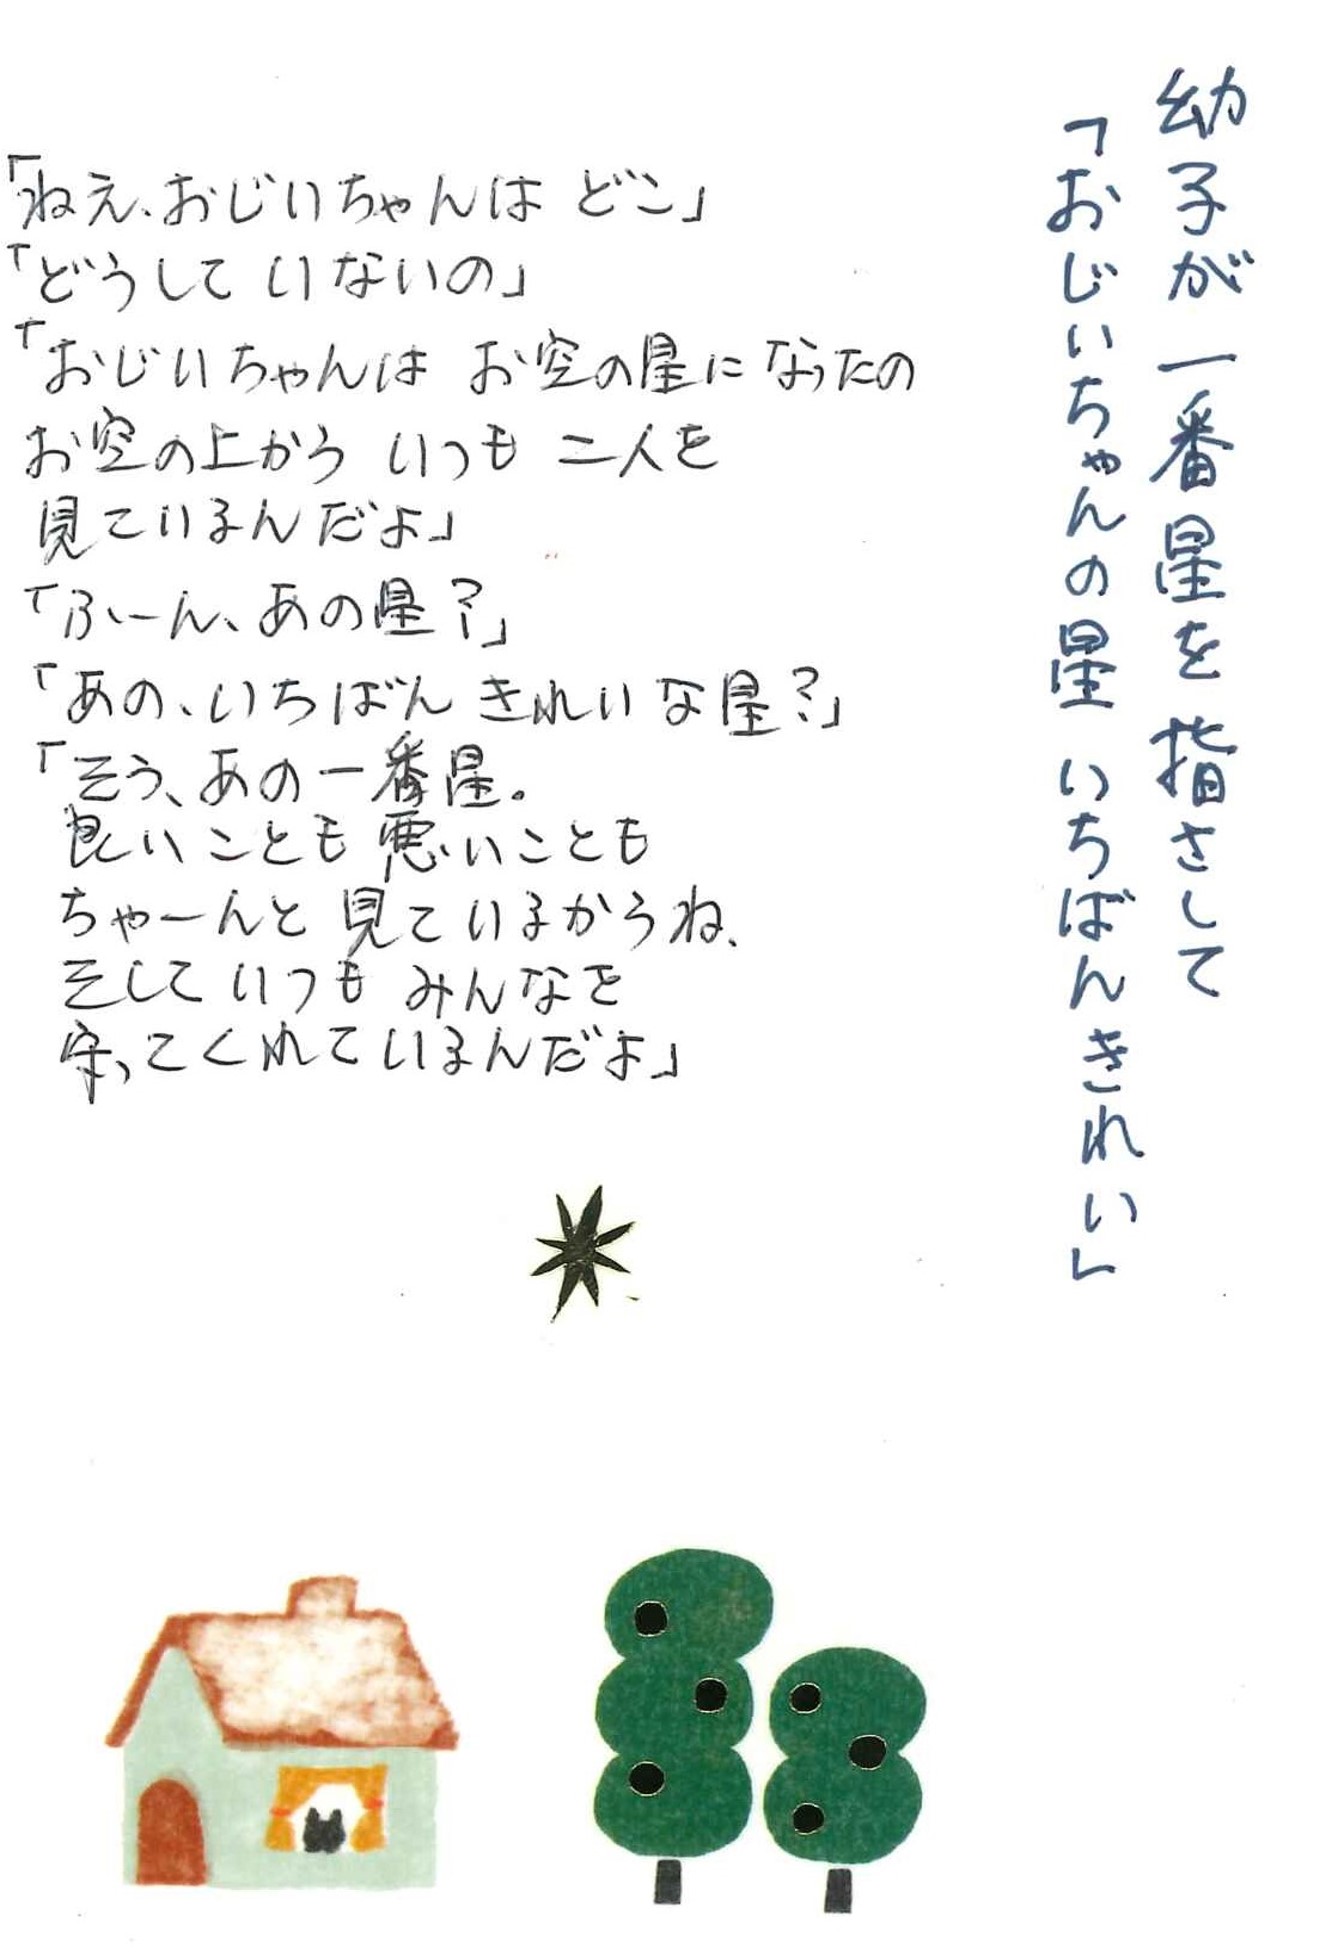 幼子が一番星を指さして
「おじいちゃんの星 いちばんきれい」
「ねえ、おじいちゃんは どこ」
「どうして いないの」
「おじいちゃんは お空の星に なったの
お空の上から いつも 二人を
見ているんだよ」
「ふーん、あの星?」
「あの、いちばん きれいな星?」
「そう、あの一番星。
良いことも 悪いことも
ちゃーんと 見ているからね、
そして いつも みんなを
守ってくれているんだよ」